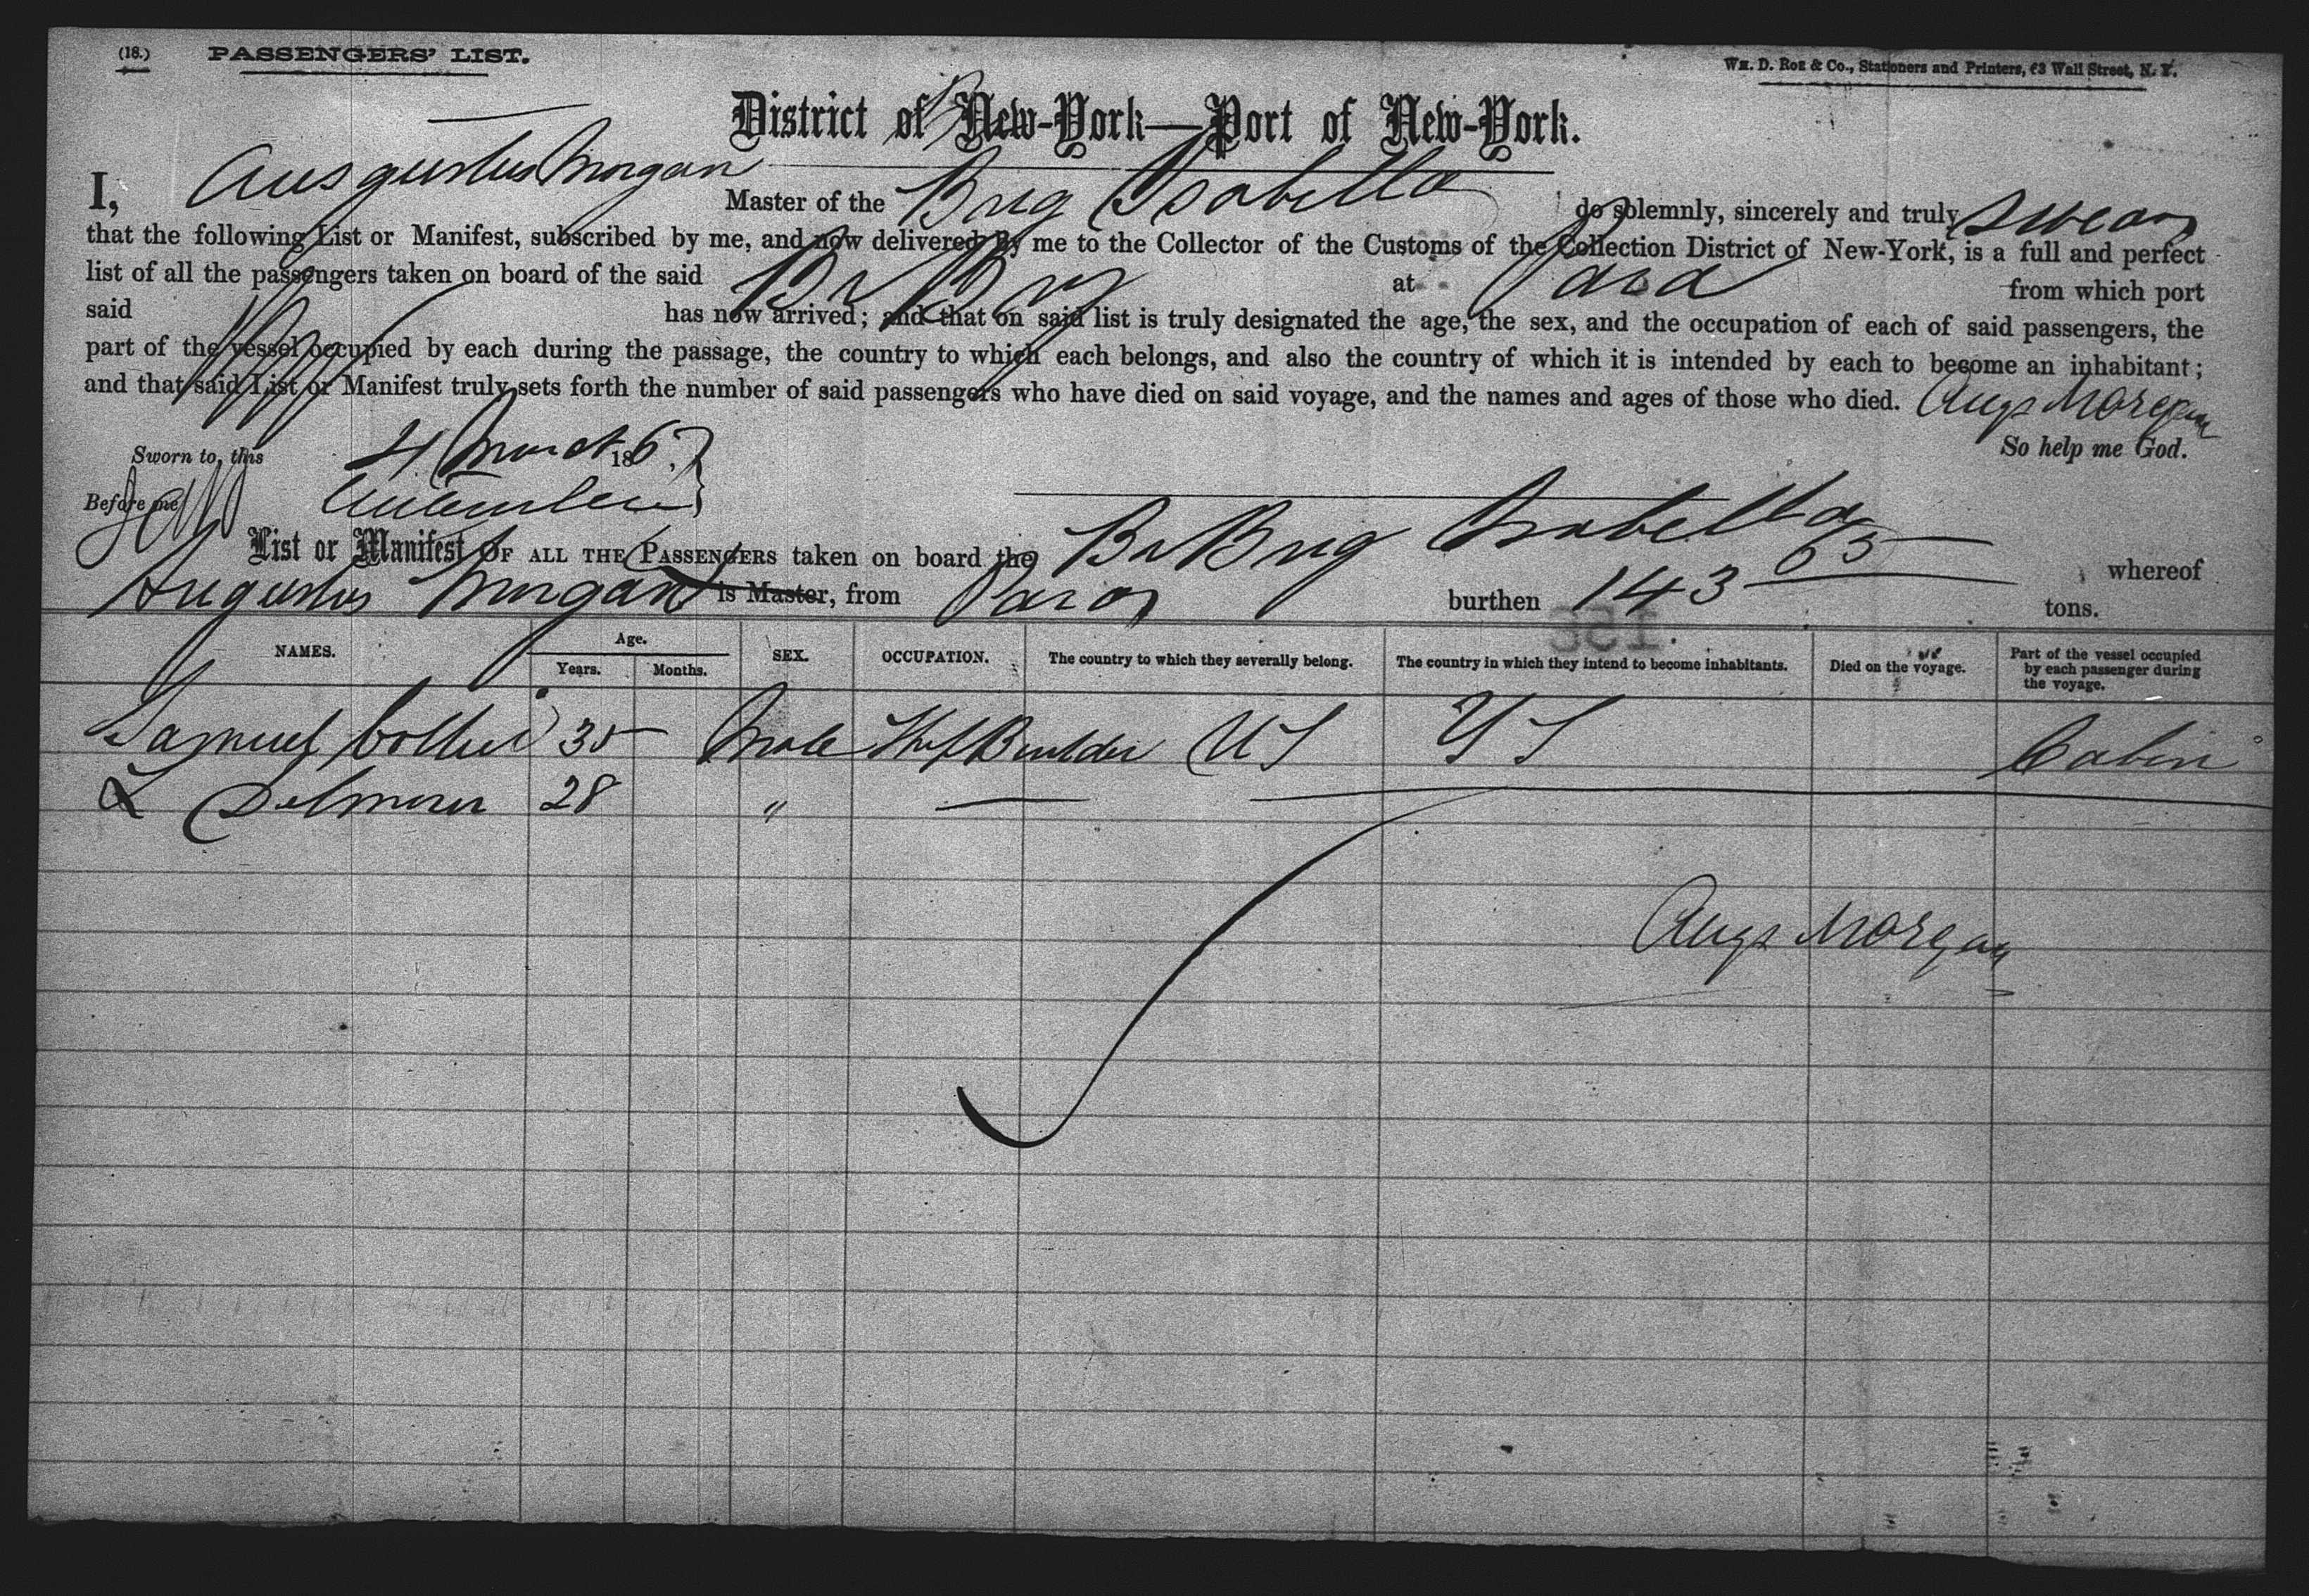 (18.) PASSENGERS' LIST.
Wm. D. Roe & Co., Stationers and Printers, 63 Wall Street, N. Y.
District of New-York—Port of New-York.
I, Ausgustus Morgan Master of the Brig Isabella do solemnly, sincerely and truly swear
that the following List or Manifest, subscribed by me, and now delivered by me to the Collector of the Customs of the Collection District of New-York, is a full and perfect
list of all the passengers taken on board of the said Br Brig at Para from which port
said has now arrived; and that on said list is truly designated the age, the sex, and the occupation of each of said passengers, the
part of the vessel occupied by each during the passage, the country to which each belongs, and also the country of which it is intended by each to become an inhabitant;
and that said List or Manifest truly sets forth the number of said passengers who have died on said voyage, and the names and ages of those who died. Augs Morgan
Sworn to, this 4 March 186 So help me God.
Before me
List or Manifest OF ALL THE PASSENGERS taken on board the Br Brig Isabella whereof
Augustus Morgan is Master, from Para burthen 143 65 tons.
NAMES. Age. Years. Months. SEX. OCCUPATION. The country to which they severally belong. The country in which they intend to become inhabitants. Died on the voyage. Part of the vessel occupied by each passenger during the voyage.
Samuel Collier 35 Male Builder US US Cabin
28 "
Augs Morgan